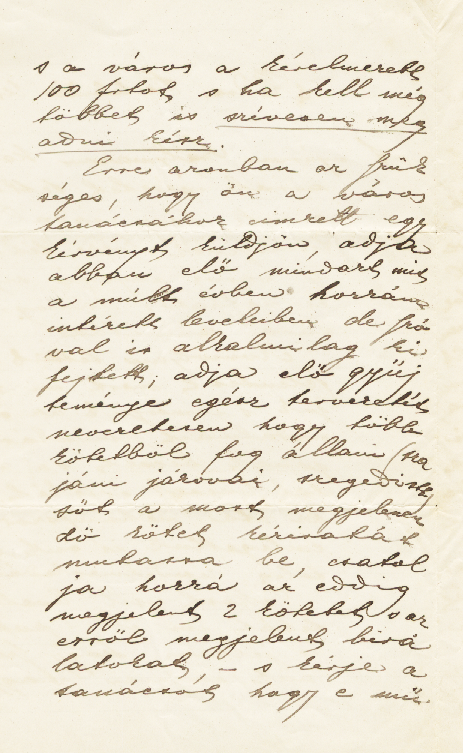 s a város a kérelmezett
100 frtot s ha kell még
többet is szívesen meg
adni kész.
Erre azonban az szük
séges, hogy ön a város
tanácsához címzett egy
kérvényt küldjön, adja
abban elő mindazt mit
a múlt évben hozzám
intézett leveleiben de szó
val is alkalmilag ki
fejtett; adja elő gyüj
teménye egész tervezetét
nevezetesen hogy több
kötetből fog állani
jáni járovai, szegedi
sőt a most megjelenen
dő kötet kéziratát
mutassa be, csatol
ja hozzá az eddig
megjelent 2 kötetet s az
erről megjelent birá
latokat, – s kérje a
tanácsot, hogy e mű